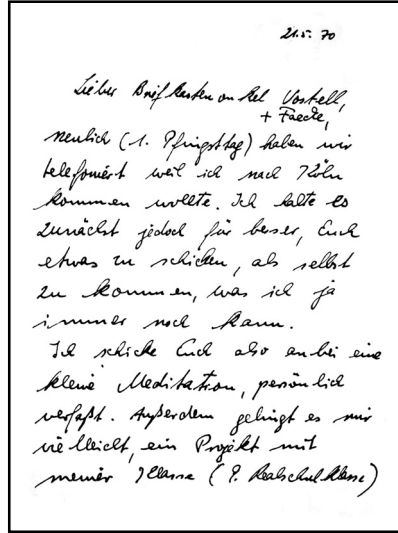 21.5. 70
Lieber Briefkastenonkel Vostell,
+ Faecke,
neulich (1. Pfingsttag) haben wir
telefoniert weil ich nach Köln
kommen wollte. Ich halte es
zunächst jedoch für besser, Euch
etwas zu schicken, als selbst
zu kommen, was ich ja
immer noch kann.
Ich schicke Euch also anbei eine
kleine Meditation, persönlich
verfaßt. Außerdem gelingt es mir
vielleicht, ein Projekt mit
meiner Klasse (9. Realschulklasse)